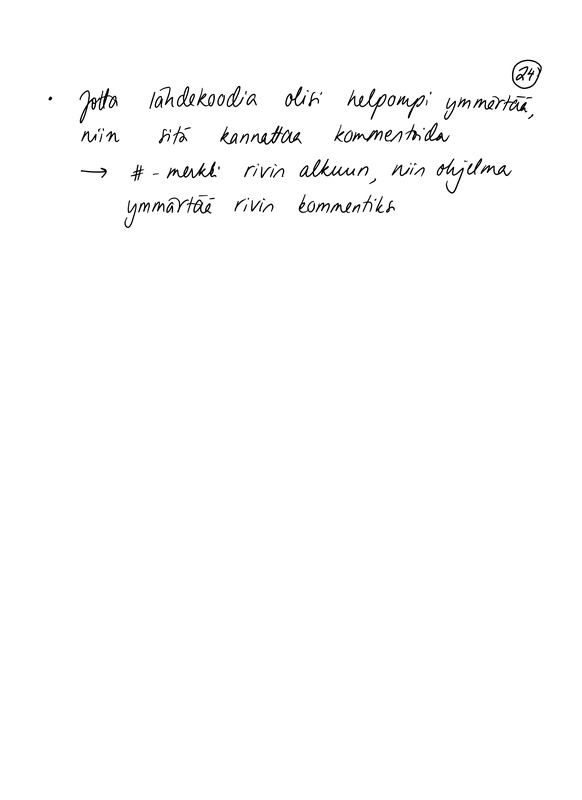 24
• Jotta lähdekoodia olisi helpompi ymmärtää,
niin sitä kannattaa kommentoida
→ # - merkki rivin alkuun, niin ohjelma
ymmärtää rivin kommentiksi